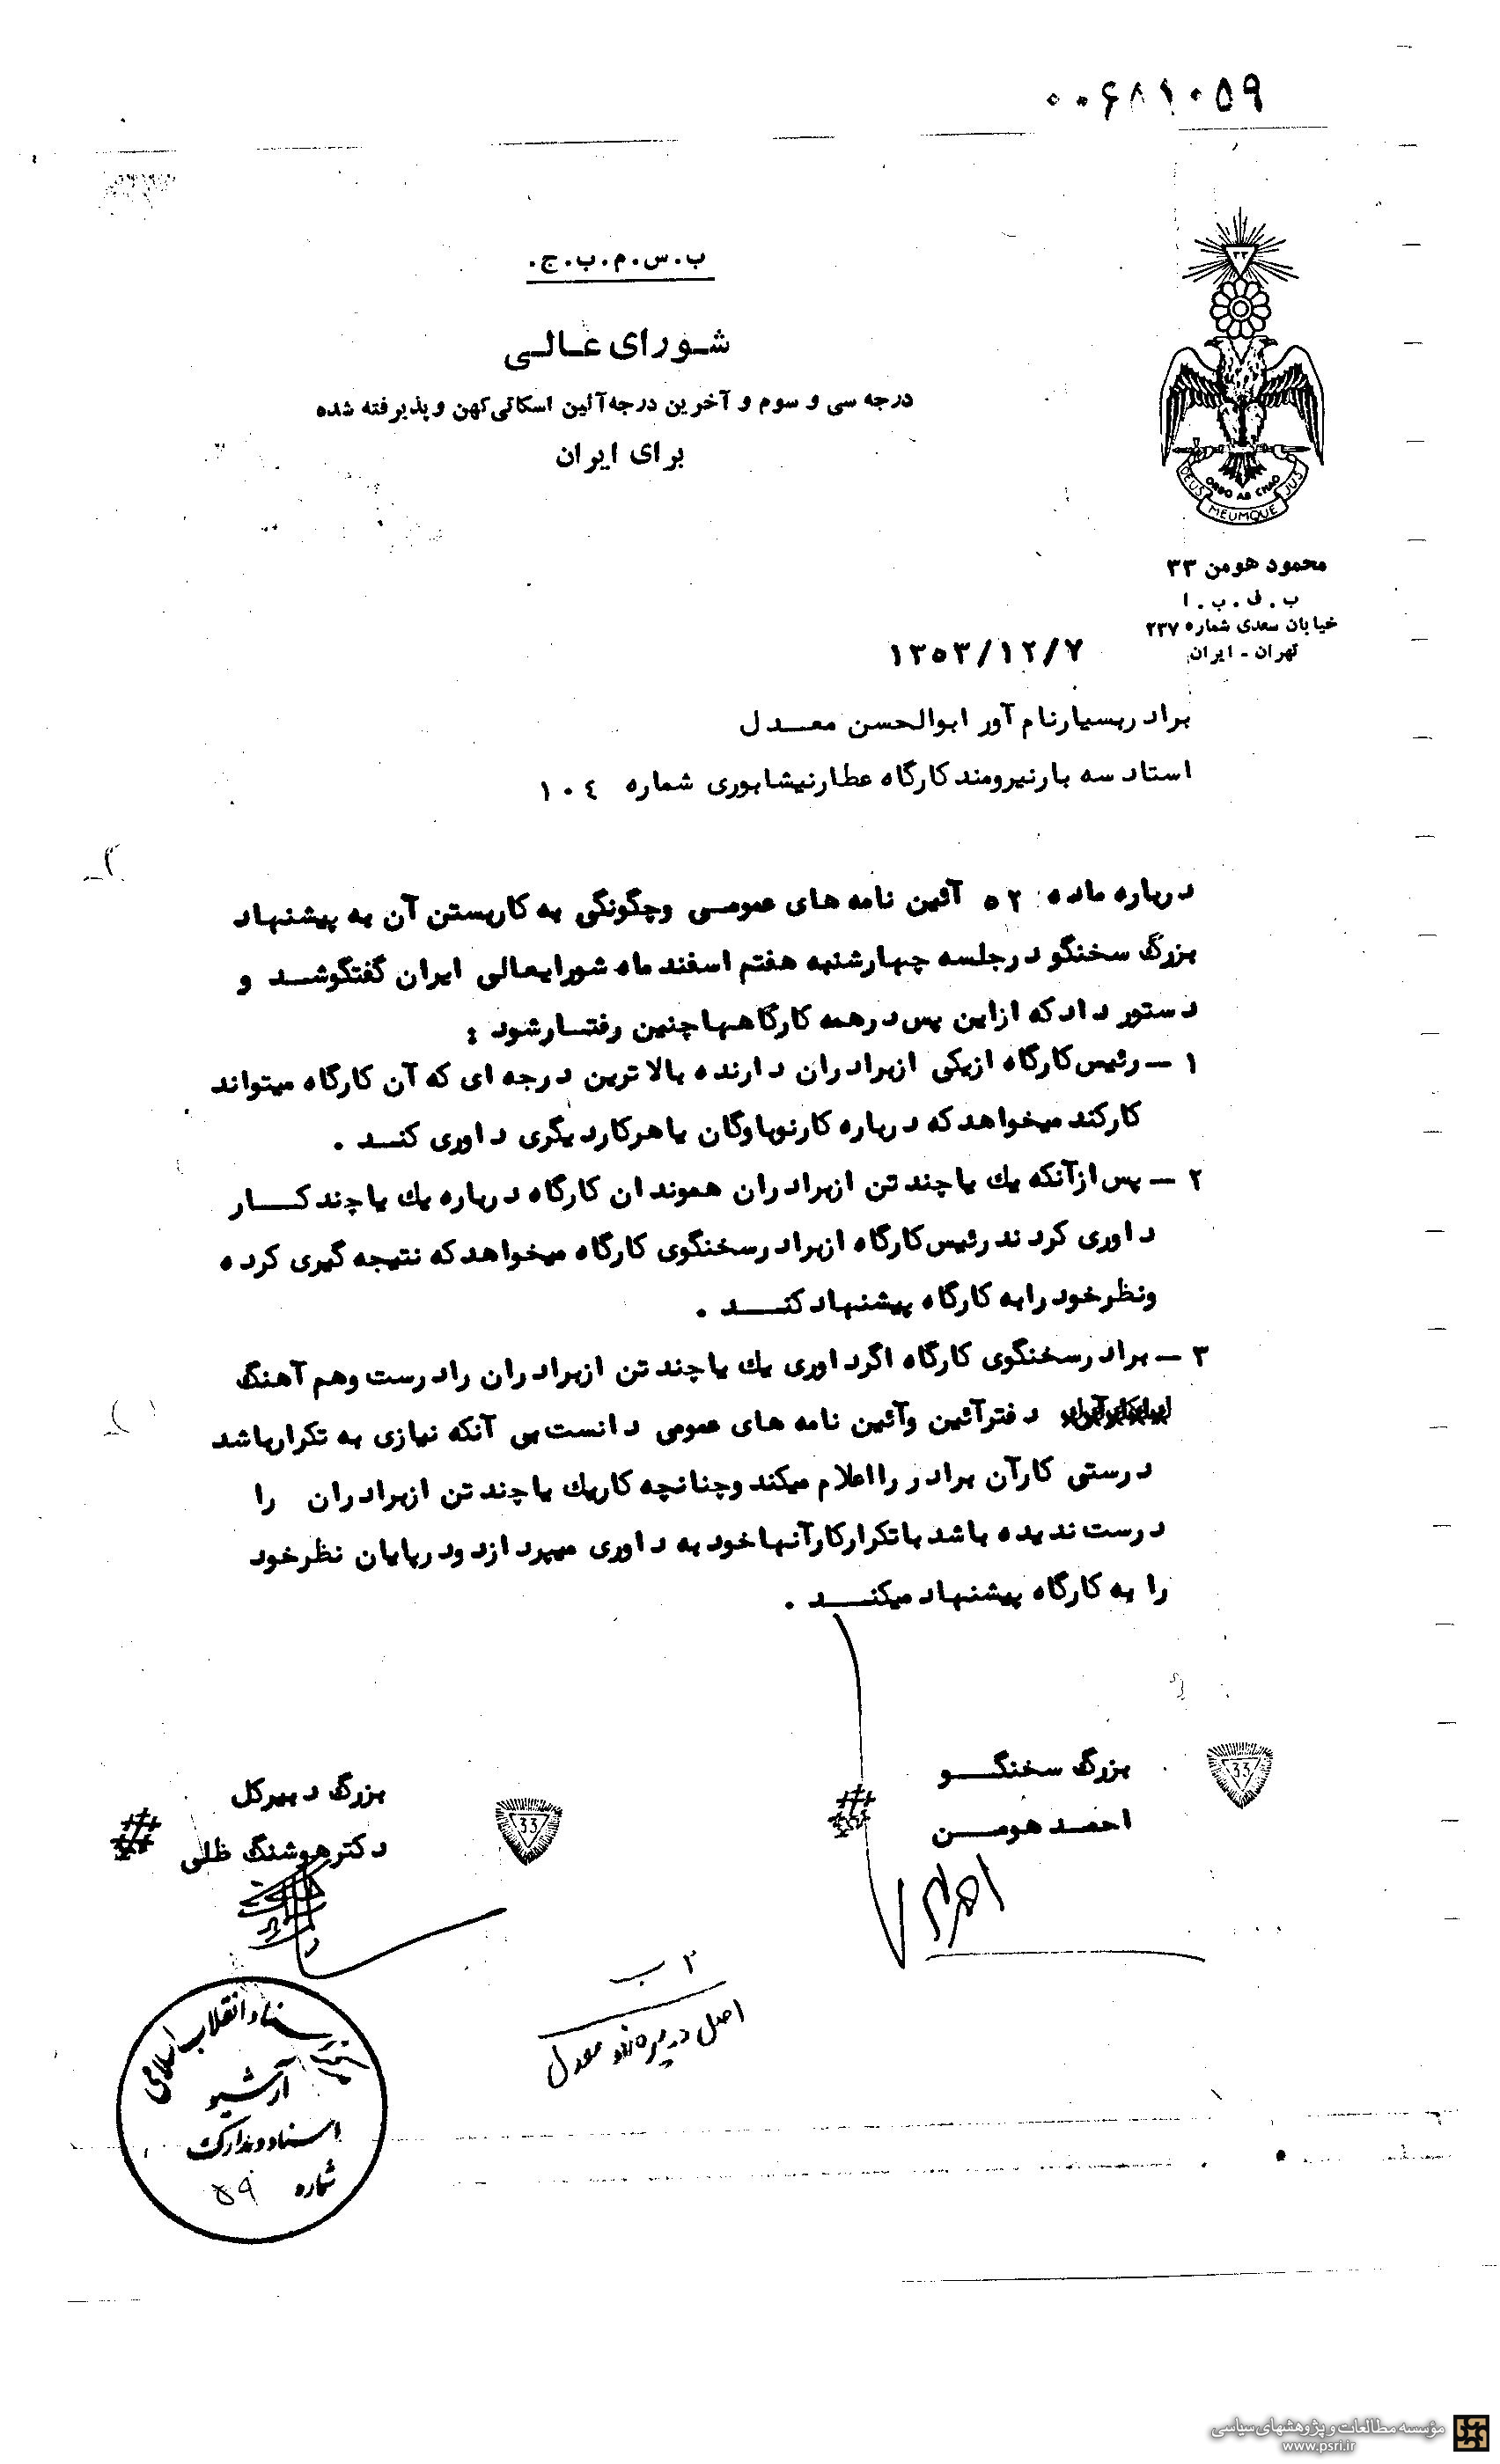 ۰۰۶۸۱۰۵۹
ب.س.م.ب.ج.
شورای عالی
درجه سی و سوم و آخرین درجه آئین اسکاتی کهن و پذیرفته شده
برای ایران
۳۳
DEUS MEUMQUE JUS
ORDO AB CHAO
محمود هومن ۳۳
ب.ف.ب.ا
خیابان سعدی شماره ۲۳۷
تهران - ایران
۱۳۵۳/۱۲/۷
برادر بسیار نام آور ابوالحسن معدل
استاد سه بار نیرومند کارگاه عطار نیشابوری شماره ۱۰۴
درباره ماده ۵۲ آئین نامه های عمومی و چگونگی به کار بستن آن به پیشنهاد
بزرگ سخنگو در جلسه چهارشنبه هفتم اسفند ماه شورایعالی ایران گفتگو شد و
دستور داد که از این پس در همه کارگاهها چنین رفتار شود :
۱ - رئیس کارگاه از یکی از برادران دارنده بالاترین درجه ای که آن کارگاه میتواند
کار کند میخواهد که درباره کار نوباوگان یا هر کار دیگری داوری کند .
۲ - پس از آنکه یك یا چند تن از برادران هموندان کارگاه درباره یك یا چند کار
داوری کردند رئیس کارگاه از برادر سخنگوی کارگاه میخواهد که نتیجه گیری کرده
و نظر خود را به کارگاه پیشنهاد کند .
۳ - برادر سخنگوی کارگاه اگر داوری یك یا چند تن از برادران را درست و هم آهنگ
دفتر آئین و آئین نامه های عمومی دانست بی آنکه نیازی به تکرار باشد
درستی کار آن برادر را اعلام میکند و چنانچه کار یك یا چند تن از برادران را
درست ندیده باشد با تکرار کار آنها خود به داوری میپردازد و در پایان نظر خود
را به کارگاه پیشنهاد میکند .
33
بزرگ سخنگو
احمد هومن
33
بزرگ دبیر کل
دکتر هوشنگ ظلی
۲ ب
اصل در پرونده معدل
اسناد انقلاب اسلامی
آرشیو
اسناد و مدارک
شماره ۵۹
مؤسسه مطالعات و پژوهشهای سیاسی
www.psri.ir